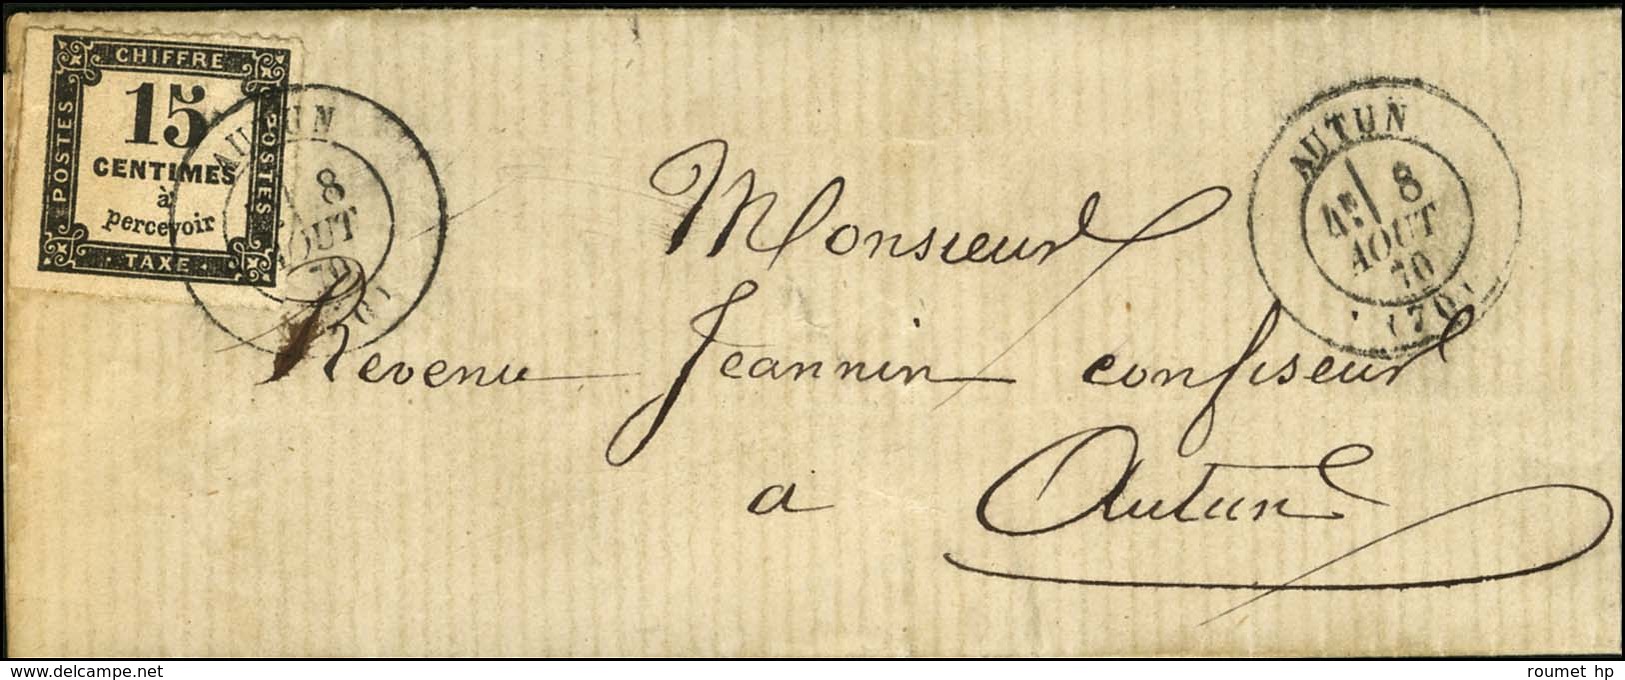 CHIFFRE
POSTES
POSTES
15
CENTIMES
à
percevoir
· TAXE ·
AUTUN
8
AOUT
70
(70)
AUTUN
4E 8
AOUT
70
(70)
Monsieur
Revenu Jeannin confiseur
a Autun
roumet hp